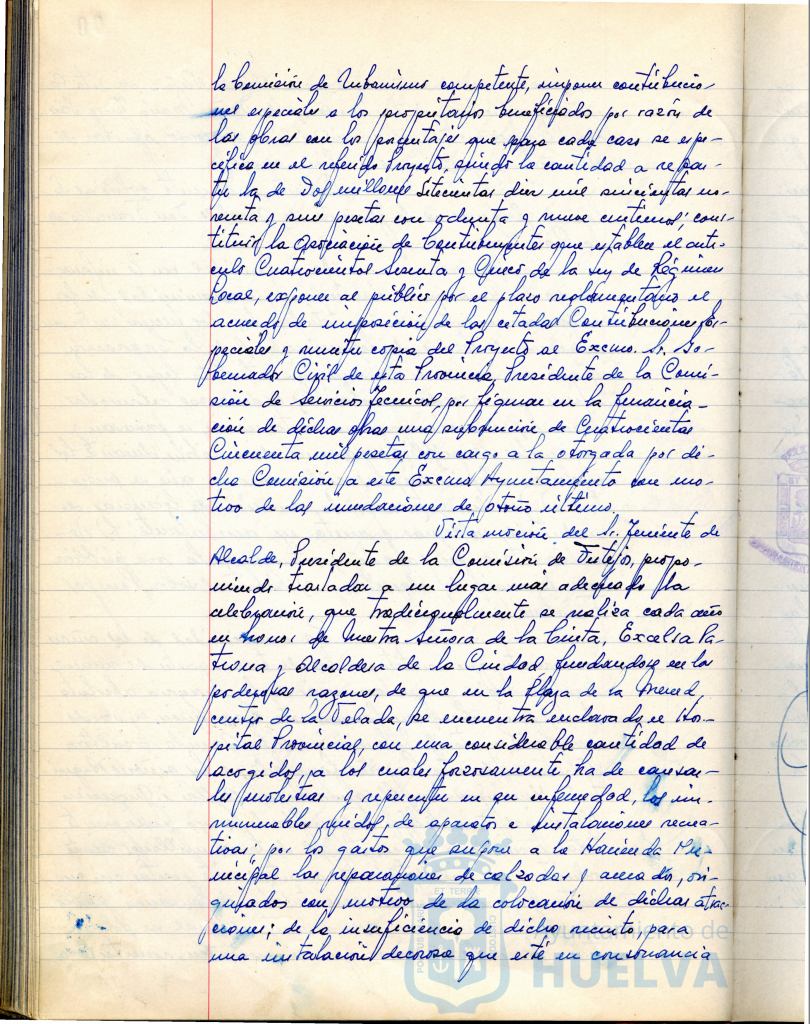 la Comisión de Urbanismo competente, imponer contribucio-
nes especiales a los propietarios beneficiados por razón de
las obras con los porcentajes que para cada caso se espe-
cifica en el referido Proyecto, siendo la cantidad a repar-
tir la de Dos millones Setecientas diez mil quinientas no-
venta y seis pesetas con ochenta y nueve centimos; cons-
tituir la Asociación de Contribuyentes que establece el artí-
culo Cuatrocientos Sesenta y Cinco de la Ley de Régimen
Local, exponer al público por el plazo reglamentario el
acuerdo de imposición de las citadas Contribuciones Es-
peciales y remitir copia del Proyecto al Excmo. Sr. Go-
bernador Civil de esta Provincia, Presidente de la Comi-
sión de Servicios Técnicos, por figurar en la financia-
ción de dichas obras una subvención de Cuatrocientas
Cincuenta mil pesetas con cargo a la otorgada por di-
cha Comisión a este Excmo Ayuntamiento con mo-
tivo de las inundaciones de otoño último.
Vista moción del Sr. Teniente de
Alcalde, Presidente de la Comisión de Festejos, propo-
niendo trasladar a un lugar más adecuado la
celebración, que tradicionalmente se realiza cada año
en honor de Nuestra Señora de la Cinta, Excelsa Pa-
trona y Alcaldesa de la Ciudad, fundandose en las
poderosas razones, de que en la Plaza de la Merced,
centro de la Velada, se encuentra enclavado el Hos-
pital Provincial, con una considerable cantidad de
acogidos, a los cuales forzosamente ha de causar-
les molestias y repercutir en su enfermedad, los in-
numerables ruidos, de aparatos e instalaciones recrea-
tivas; por los gastos que supone a la Hacienda Mu-
nicipal las reparaciones de calzadas y acerados, ori-
ginados con motivo de la colocación de dichas atrac-
ciones; de la insuficiencia de dicho recinto, para
una instalación decorosa que esté en consonancia
Ayuntamiento de
HUELVA